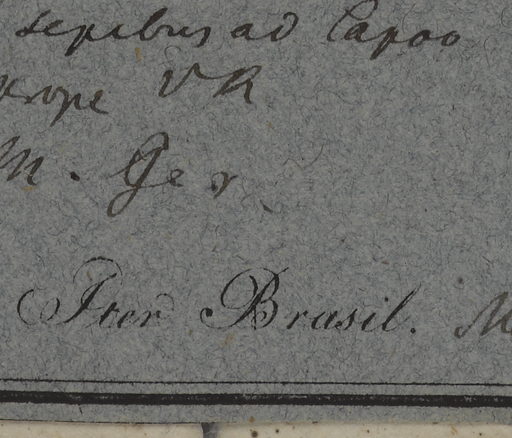 sepibus ad Capoo
prope VR
M. Ger.
Iter Brasil. M